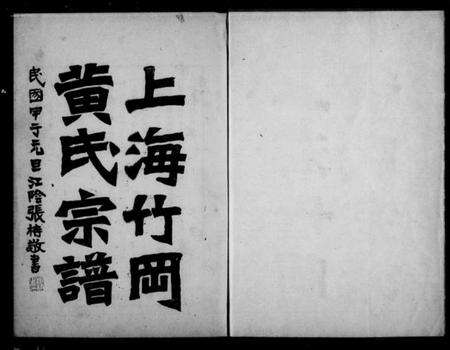 上海竹岡
黄氏宗譜
民國甲子元旦江陰張
敬書